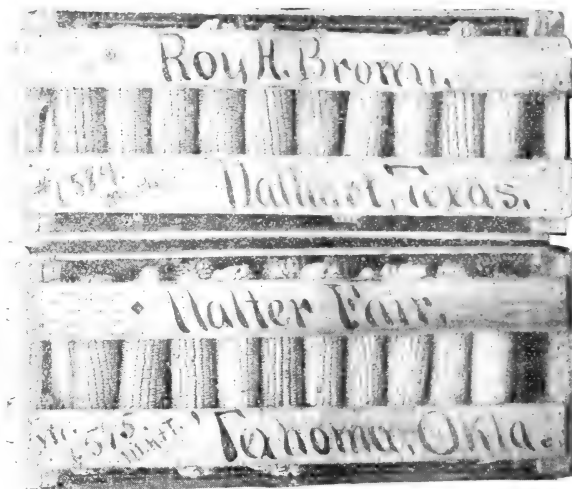 Roy H. Brown.
Dalhart, Texas.
Walter Fair.
Texhoma, Okla.